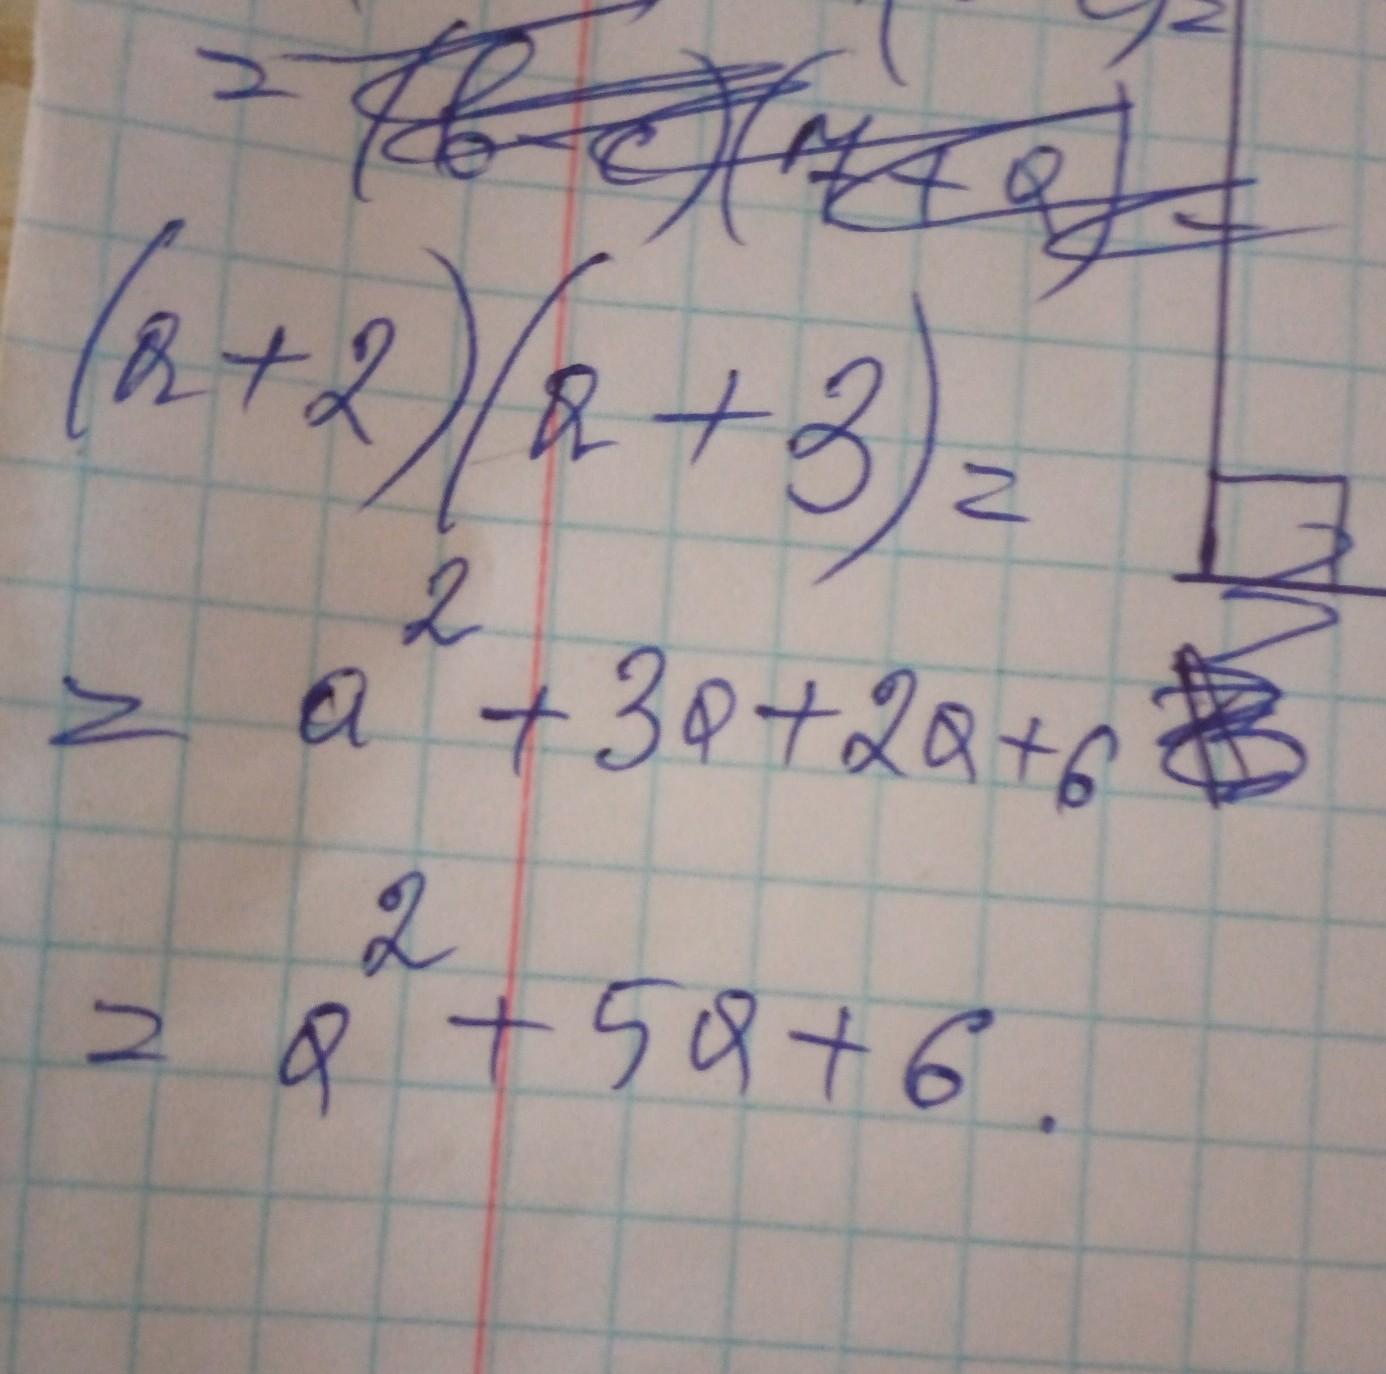 = (b-c)(7+a) -
(a+2)(a+3)=
= a² +3a+2a+6
= a² +5a+6.